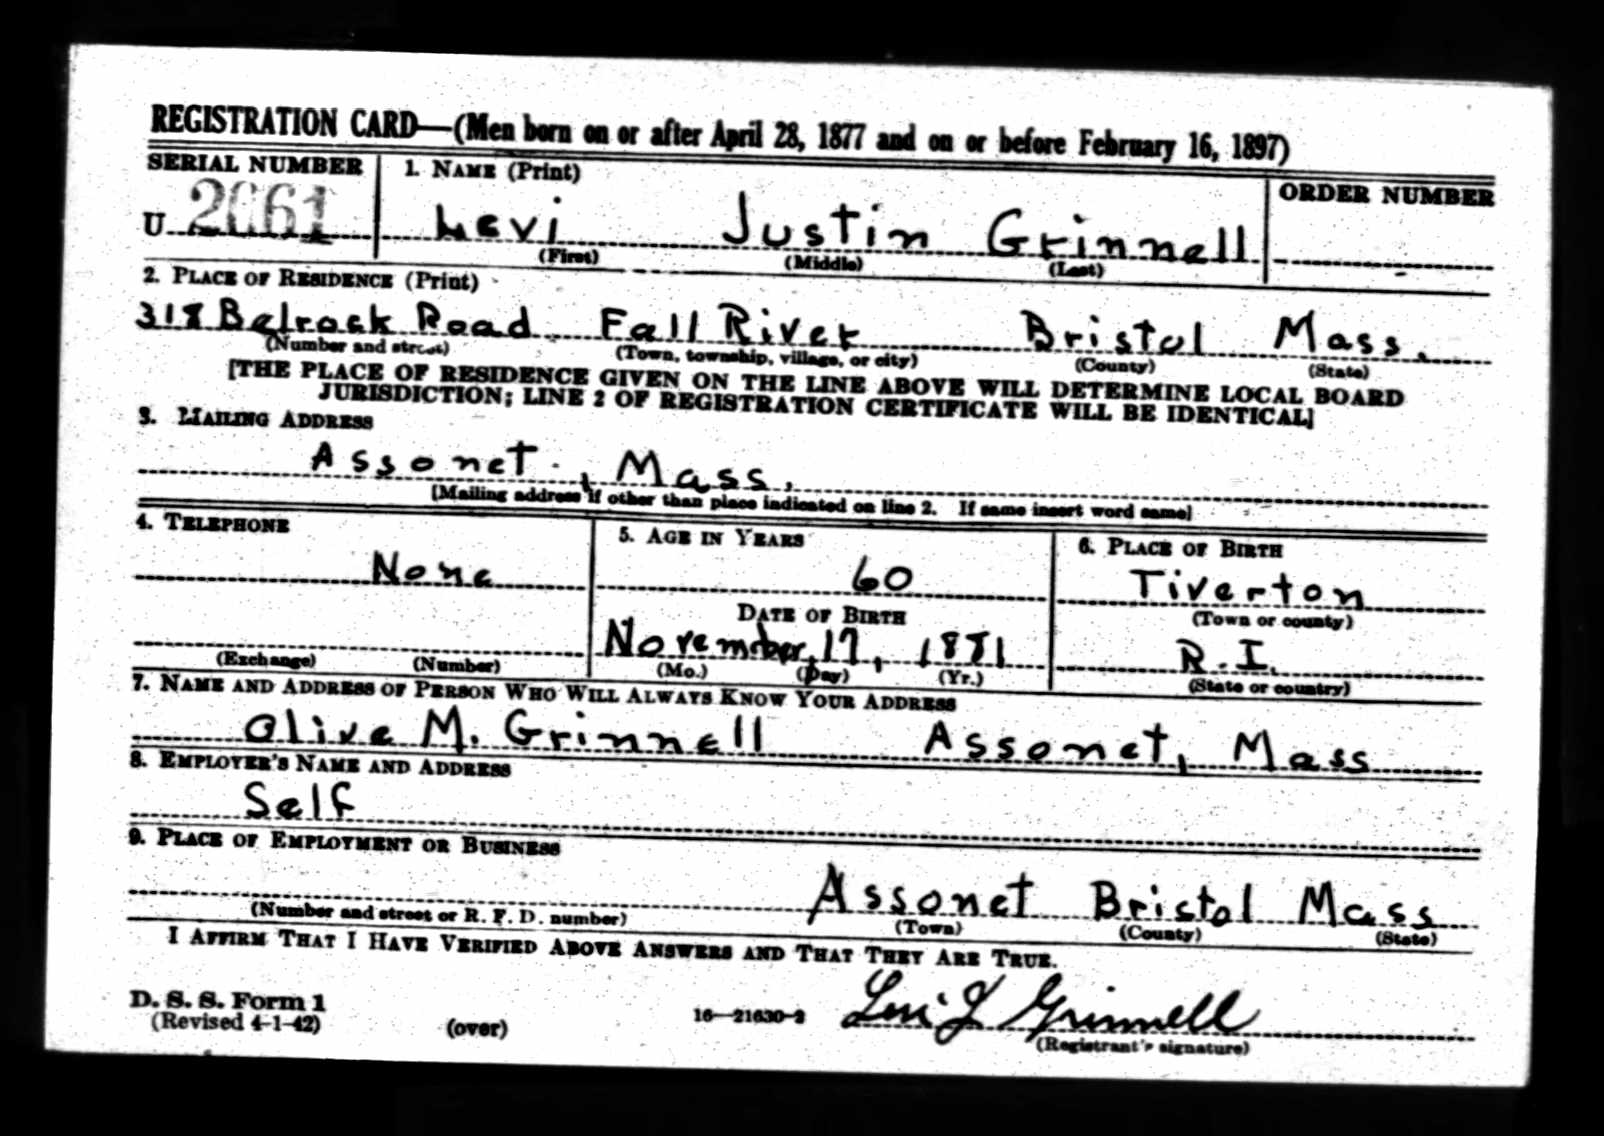 REGISTRATION CARD—(Men born on or after April 28, 1877 and on or before February 16, 1897)
SERIAL NUMBER 1. NAME (Print) ORDER NUMBER
U 2661 Levi Justin Grinnell
(First) (Middle) (Last)
2. PLACE OF RESIDENCE (Print)
318 Belrock Road Fall River Bristol Mass.
(Number and street) (Town, township, village, or city) (County) (State)
[THE PLACE OF RESIDENCE GIVEN ON THE LINE ABOVE WILL DETERMINE LOCAL BOARD
JURISDICTION; LINE 2 OF REGISTRATION CERTIFICATE WILL BE IDENTICAL]
3. MAILING ADDRESS
Assonet, Mass.
[Mailing address if other than place indicated on line 2. If same insert word same]
4. TELEPHONE 5. AGE IN YEARS 6. PLACE OF BIRTH
None 60 Tiverton
DATE OF BIRTH (Town or county)
November 17, 1881 R.I.
(Exchange) (Number) (Mo.) (Day) (Yr.) (State or country)
7. NAME AND ADDRESS OF PERSON WHO WILL ALWAYS KNOW YOUR ADDRESS
Olive M. Grinnell Assonet, Mass
8. EMPLOYER'S NAME AND ADDRESS
Self
9. PLACE OF EMPLOYMENT OR BUSINESS
Assonet Bristol Mass
(Number and street or R. F. D. number) (Town) (County) (State)
I AFFIRM THAT I HAVE VERIFIED ABOVE ANSWERS AND THAT THEY ARE TRUE.
D. S. S. Form 1
(Revised 4-1-42) (over) 16—21630-2 Levi J Grinnell
(Registrant's signature)